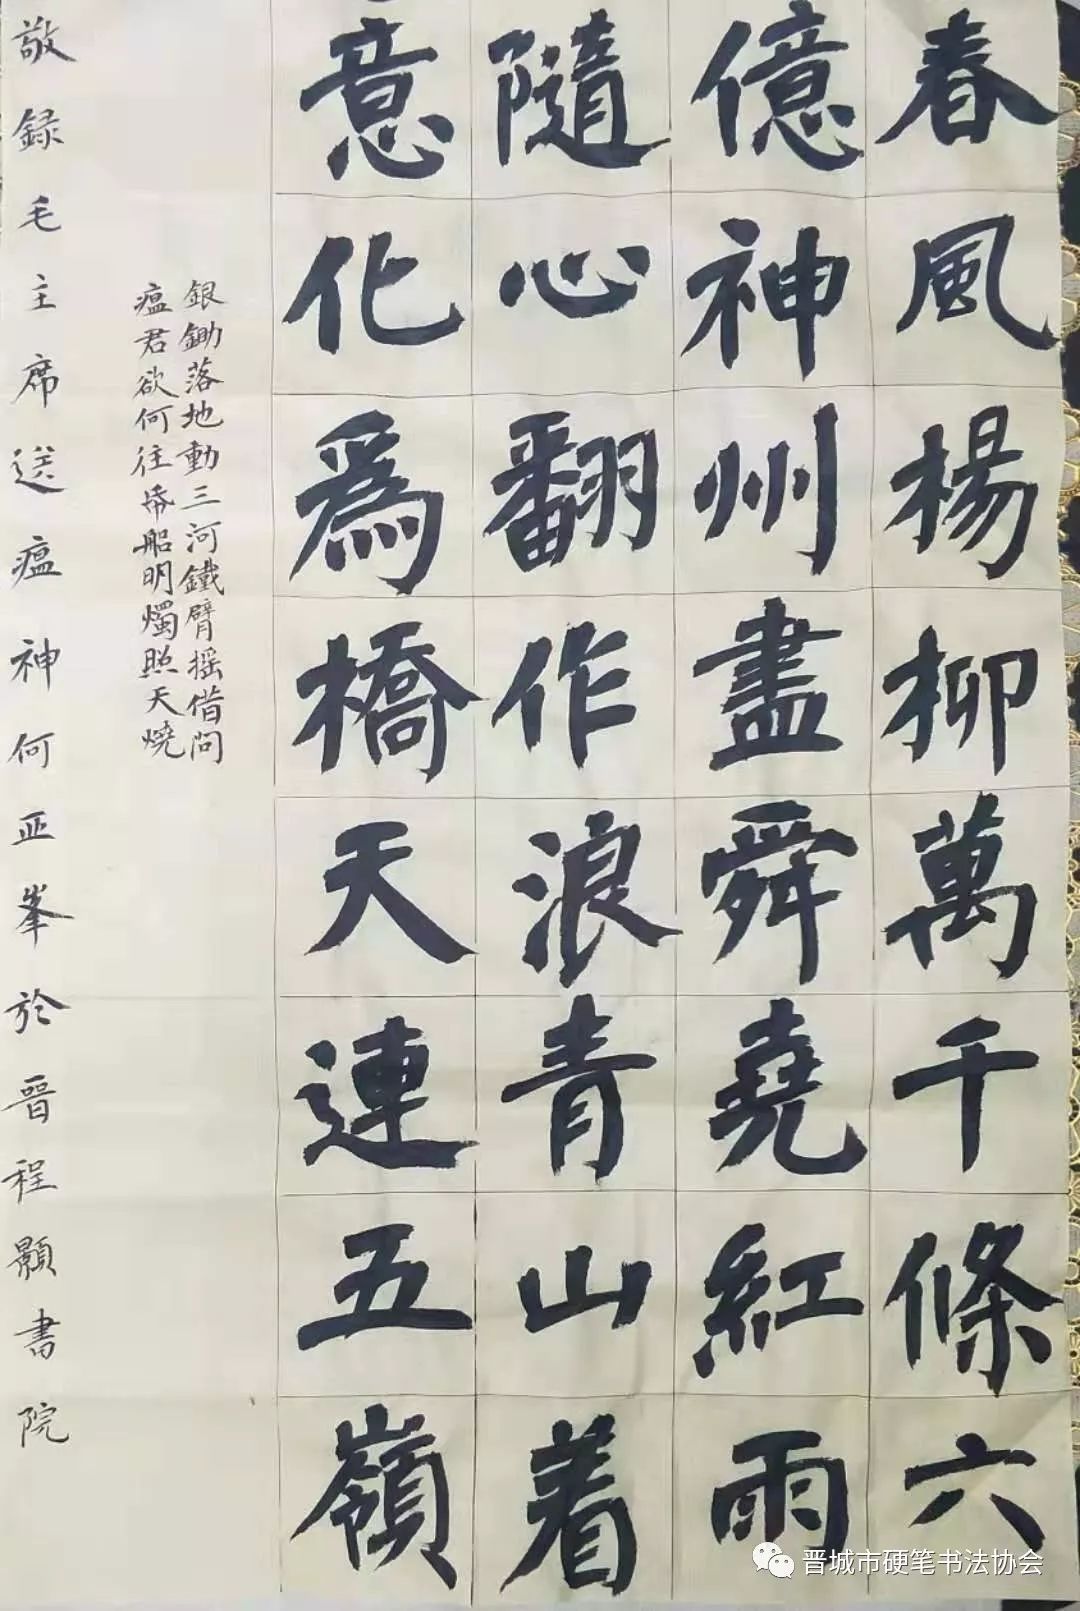 春風楊柳萬千條六
億神州盡舜堯紅雨
隨心翻作浪青山着
意化為橋天連五嶺
銀鋤落地動三河鐵臂摇借問
瘟君欲何往帋船明燭照天燒
敬録毛主席送瘟神何亚峯於晋程顥書院
晋城市硬笔书法协会